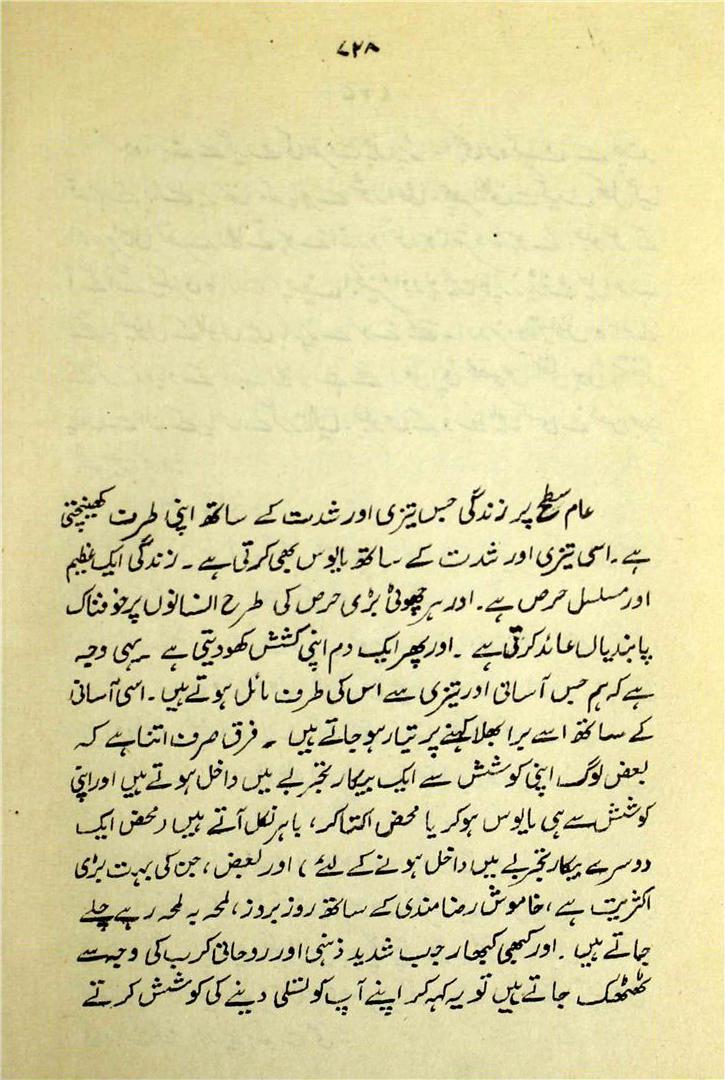 ۷۲۸
عام سطح پر زندگی جس تیزی اور شدت کے ساتھ اپنی طرف کھینچتی
ہے۔ اسی تیزی اور شدت کے ساتھ مایوس بھی کرتی ہے۔ زندگی ایک عظیم
اور مسلسل حرص ہے۔ اور ہر چھوٹی بڑی حرص کی طرح انسانوں پر خوفناک
پابندیاں عائد کرتی ہے۔ اور پھر ایک دم اپنی کشش کھو دیتی ہے۔ یہی وجہ
ہے کہ ہم جس آسانی اور تیزی سے اس کی طرف مائل ہوتے ہیں۔ اسی آسانی
کے ساتھ اسے برا بھلا کہنے پر تیار ہو جاتے ہیں۔ فرق صرف اتنا ہے کہ
بعض لوگ اپنی کوشش سے ایک بیکار تجربے میں داخل ہوتے ہیں اور اپنی
کوشش سے ہی مایوس ہو کر یا محض اکتا کر، باہر نکل آتے ہیں (محض ایک
دوسرے بیکار تجربے میں داخل ہونے کے لئے) اور بعض، جن کی بہت بڑی
اکثریت ہے، خاموش رضامندی کے ساتھ روز بروز، لمحہ بہ لمحہ رہے چلے
جاتے ہیں۔ اور کبھی کبھار جب شدید ذہنی اور روحانی کرب کی وجہ سے
ٹھٹھک جاتے ہیں تو یہ کہہ کر اپنے آپ کو تسلی دینے کی کوشش کرتے